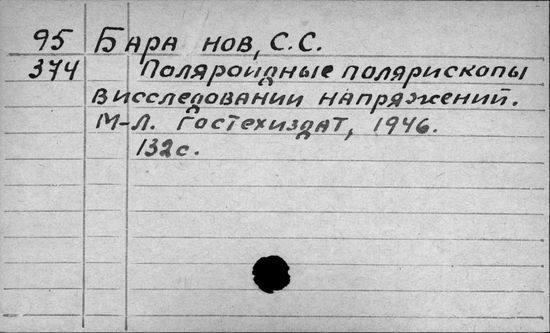 95 Бара нов, С.С.
374 Поляроидные полярископы
в исследовании напряжений.
М-Л. Гостехиздат, 1946.
132с.